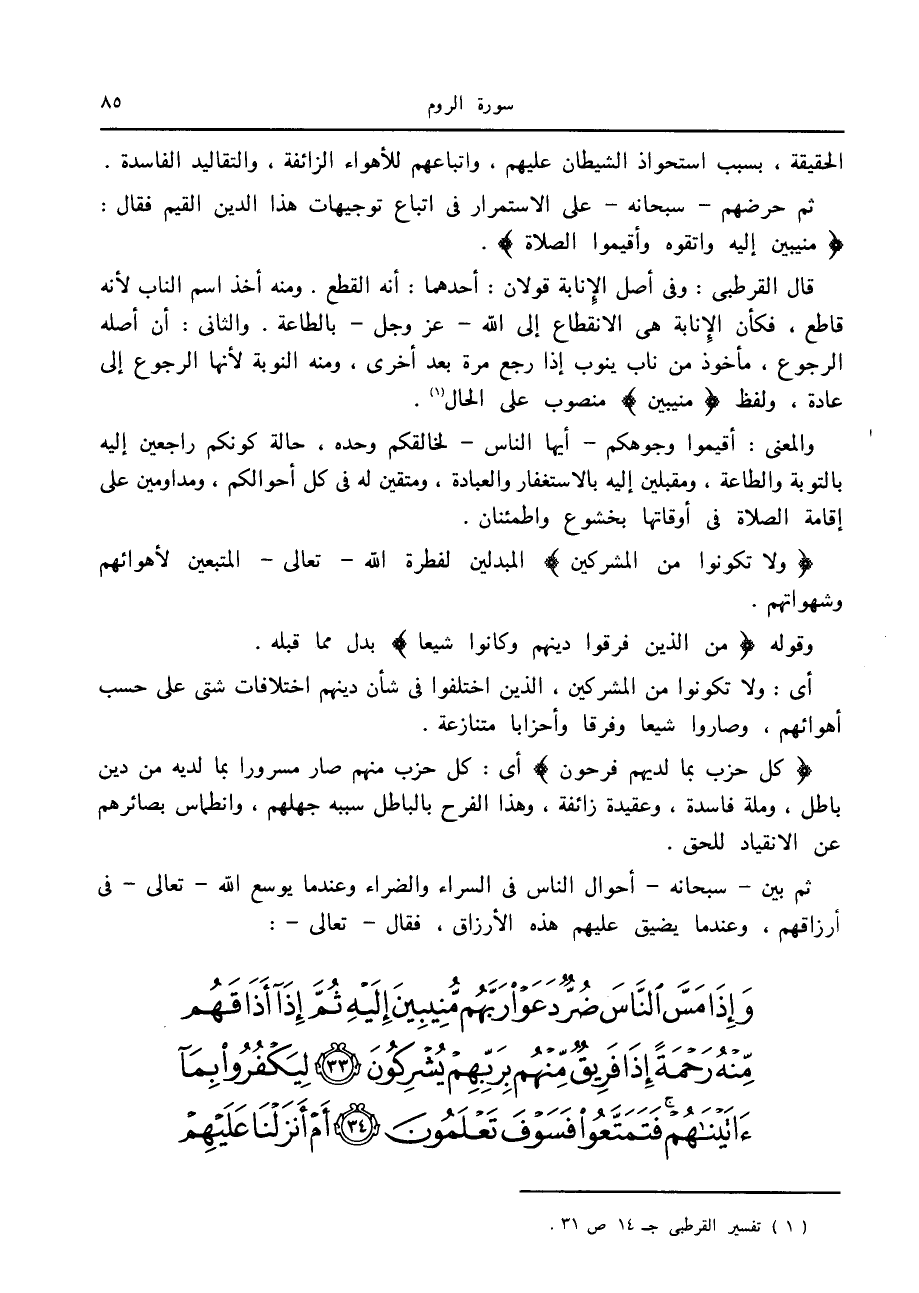 سورة الروم ٨٥
الحقيقة ، بسبب استحواذ الشيطان عليهم ، واتباعهم للأهواء الزائفة ، والتقاليد الفاسدة .
ثم حرضهم – سبحانه – على الاستمرار فى اتباع توجيهات هذا الدين القيم فقال :
﴿ منيبين إليه واتقوه وأقيموا الصلاة ﴾ .
قال القرطبى : وفى أصل الإِنابة قولان : أحدهما : أنه القطع . ومنه أخذ اسم الناب لأنه
قاطع ، فكأن الإِنابة هى الانقطاع إلى الله – عز وجل – بالطاعة . والثانى : أن أصله
الرجوع ، مأخوذ من ناب ينوب إذا رجع مرة بعد أخرى ، ومنه النوبة لأنها الرجوع إلى
عادة ، ولفظ ﴿ منيبين ﴾ منصوب على الحال(١) .
والمعنى : أقيموا وجوهكم – أيها الناس – لخالقكم وحده ، حالة كونكم راجعين إليه
بالتوبة والطاعة ، ومقبلين إليه بالاستغفار والعبادة ، ومتقين له فى كل أحوالكم ، ومداومين على
إقامة الصلاة فى أوقاتها بخشوع واطمئنان .
﴿ ولا تكونوا من المشركين ﴾ المبدلين لفطرة الله – تعالى – المتبعين لأهوائهم
وشهواتهم .
وقوله ﴿ من الذين فرقوا دينهم وكانوا شيعا ﴾ بدل مما قبله .
أى : ولا تكونوا من المشركين ، الذين اختلفوا فى شأن دينهم اختلافات شتى على حسب
أهوائهم ، وصاروا شيعا وفرقا وأحزابا متنازعة .
﴿ كل حزب بما لديهم فرحون ﴾ أى : كل حزب منهم صار مسرورا بما لديه من دين
باطل ، وملة فاسدة ، وعقيدة زائفة ، وهذا الفرح بالباطل سببه جهلهم ، وانطماس بصائرهم
عن الانقياد للحق .
ثم بين – سبحانه – أحوال الناس فى السراء والضراء وعندما يوسع الله – تعالى – فى
أرزاقهم ، وعندما يضيق عليهم هذه الأرزاق ، فقال – تعالى – :
وَإِذَا مَسَّ ٱلنَّاسَ ضُرٌّ دَعَوْا۟ رَبَّهُم مُّنِيبِينَ إِلَيْهِ ثُمَّ إِذَآ أَذَاقَهُم
مِّنْهُ رَحْمَةً إِذَا فَرِيقٌ مِّنْهُم بِرَبِّهِمْ يُشْرِكُونَ ﴿٣٣﴾ لِيَكْفُرُوا۟ بِمَآ
ءَاتَيْنَٰهُمْ ۚ فَتَمَتَّعُوا۟ فَسَوْفَ تَعْلَمُونَ ﴿٣٤﴾ أَمْ أَنزَلْنَا عَلَيْهِمْ
( ١ ) تفسير القرطبى جـ ١٤ ص ٣١ .